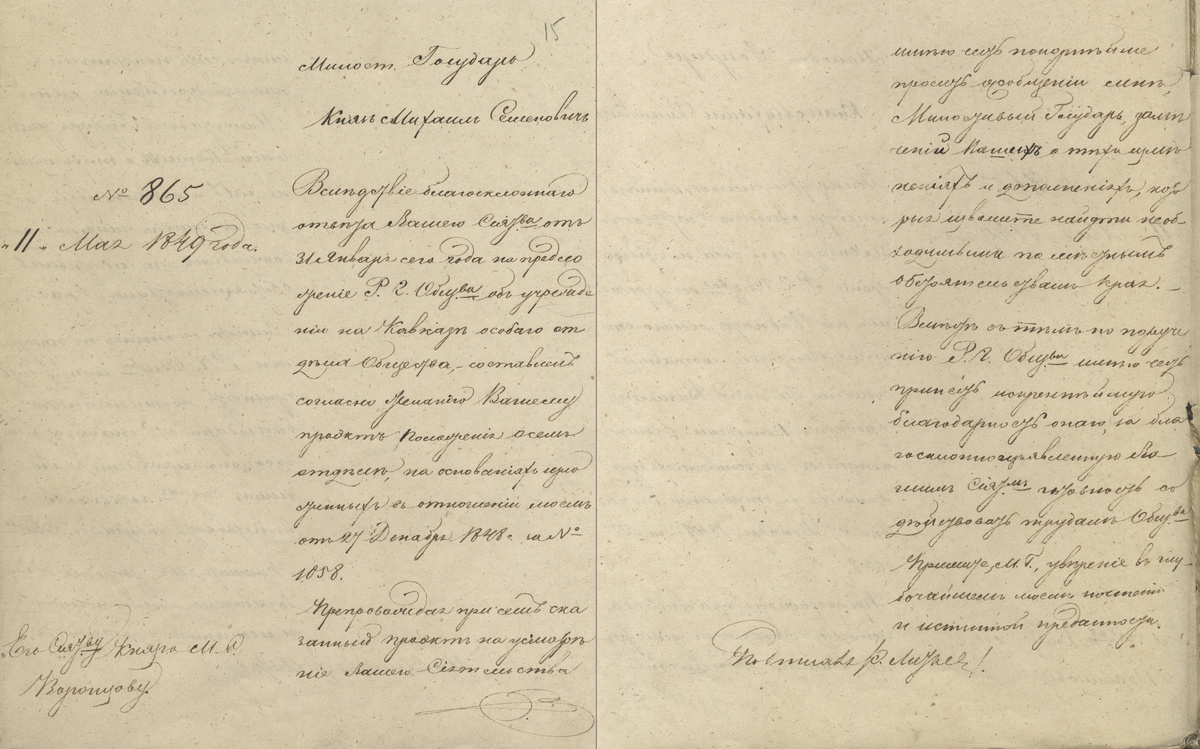 15
Милост. Государь
Князь Михаилъ Семеновичъ
№ 865
"11" Мая 1849 года.
Вслѣдствіе благосклоннаго
отвѣта Вашего Сіят-ва отъ
31 Января сего года на предло
женіе Р. Г. Общ-ва объ учрежде
ніи на Кавказѣ особаго от
дѣла Общества, – составленъ
согласно желанію Вашему
проэктъ Положенія о семъ
отдѣлѣ, на основаніяхъ изло
женныхъ въ отношеніи моемъ
отъ 27 Декабря 1848 г. за №
1058.
Препровождая при семъ ска
занный проэктъ на усмотрѣ
ніе Вашего Сіятельства
Его Сіят-ву Князю М. С.
Воронцову.
имѣю честь покорнѣйше
просить о сообщеніи мнѣ,
Милостивый Государь, замѣ
чаній Вашихъ о тѣхъ измѣ
неніяхъ и дополненіяхъ, кото
рыя изволите найдти необ-
ходимыми по мѣстнымъ
обстоятельствамъ края. –
Вмѣстѣ съ тѣмъ по поруче
нію Р. Г. Общ-ва имѣю честь
принесть искреннѣйшую
благодарность онаго, за бла
госклонно изъявленную Ва-
шимъ Сіят-мъ готовность со
дѣйствовать трудамъ Общ-ва
Примите, М. Г., увѣреніе въ глу-
бочайшемъ моемъ почтеніи
и истинной преданности.